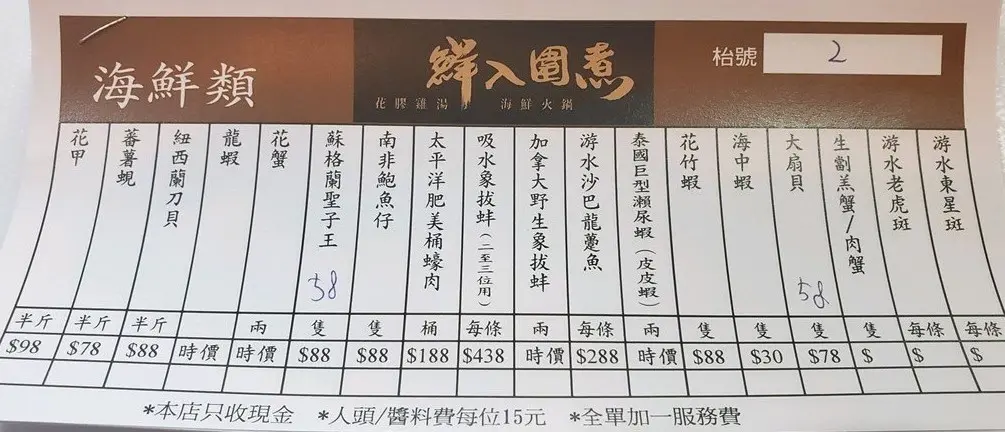 海鮮類
鮮入圍煮
花膠雞湯 海鮮火鍋
枱號 2
游水東星斑
游水老虎斑
生劏羔蟹/肉蟹
大扇貝 58
海中蝦
花竹蝦
泰國巨型瀨尿蝦(皮皮蝦)
游水沙巴龍躉魚
加拿大野生象拔蚌
吸水象拔蚌(二至三位用)
太平洋肥美桶蠔肉
南非鮑魚仔
蘇格蘭聖子王 58
花蟹
龍蝦
紐西蘭刀貝
蕃薯蜆
花甲
半斤 半斤 半斤 兩 隻 隻 桶 每條 兩 每條 兩 隻 隻 隻 隻 每條 每條
$98 $78 $88 時價 時價 $88 $88 $188 $438 時價 $288 時價 $88 $30 $78 $ $ $
*本店只收現金 *人頭/醬料費每位15元 *全單加一服務費